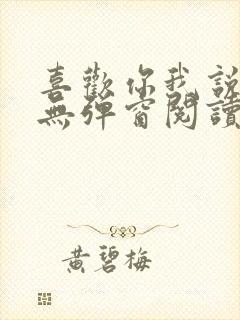 喜歡你我說
無彈窗閱讀
黃碧梅